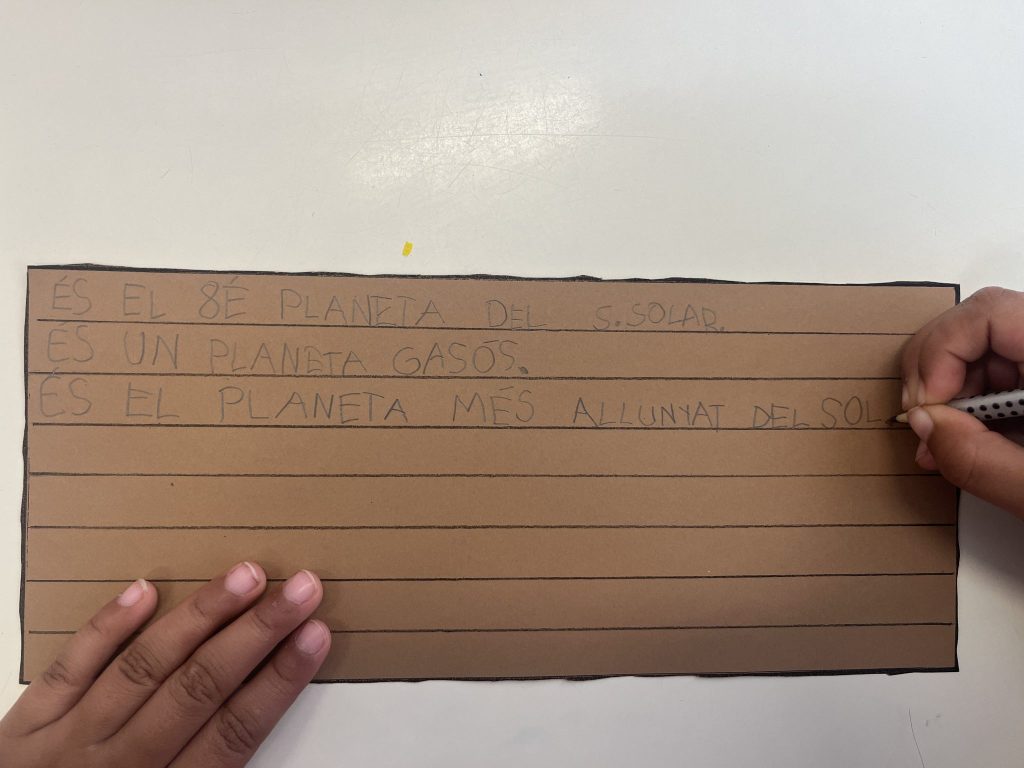 ÉS EL 8É PLANETA DEL S.SOLAR.
ÉS UN PLANETA GASÓS.
ÉS EL PLANETA MÉS ALLUNYAT DEL SOL.